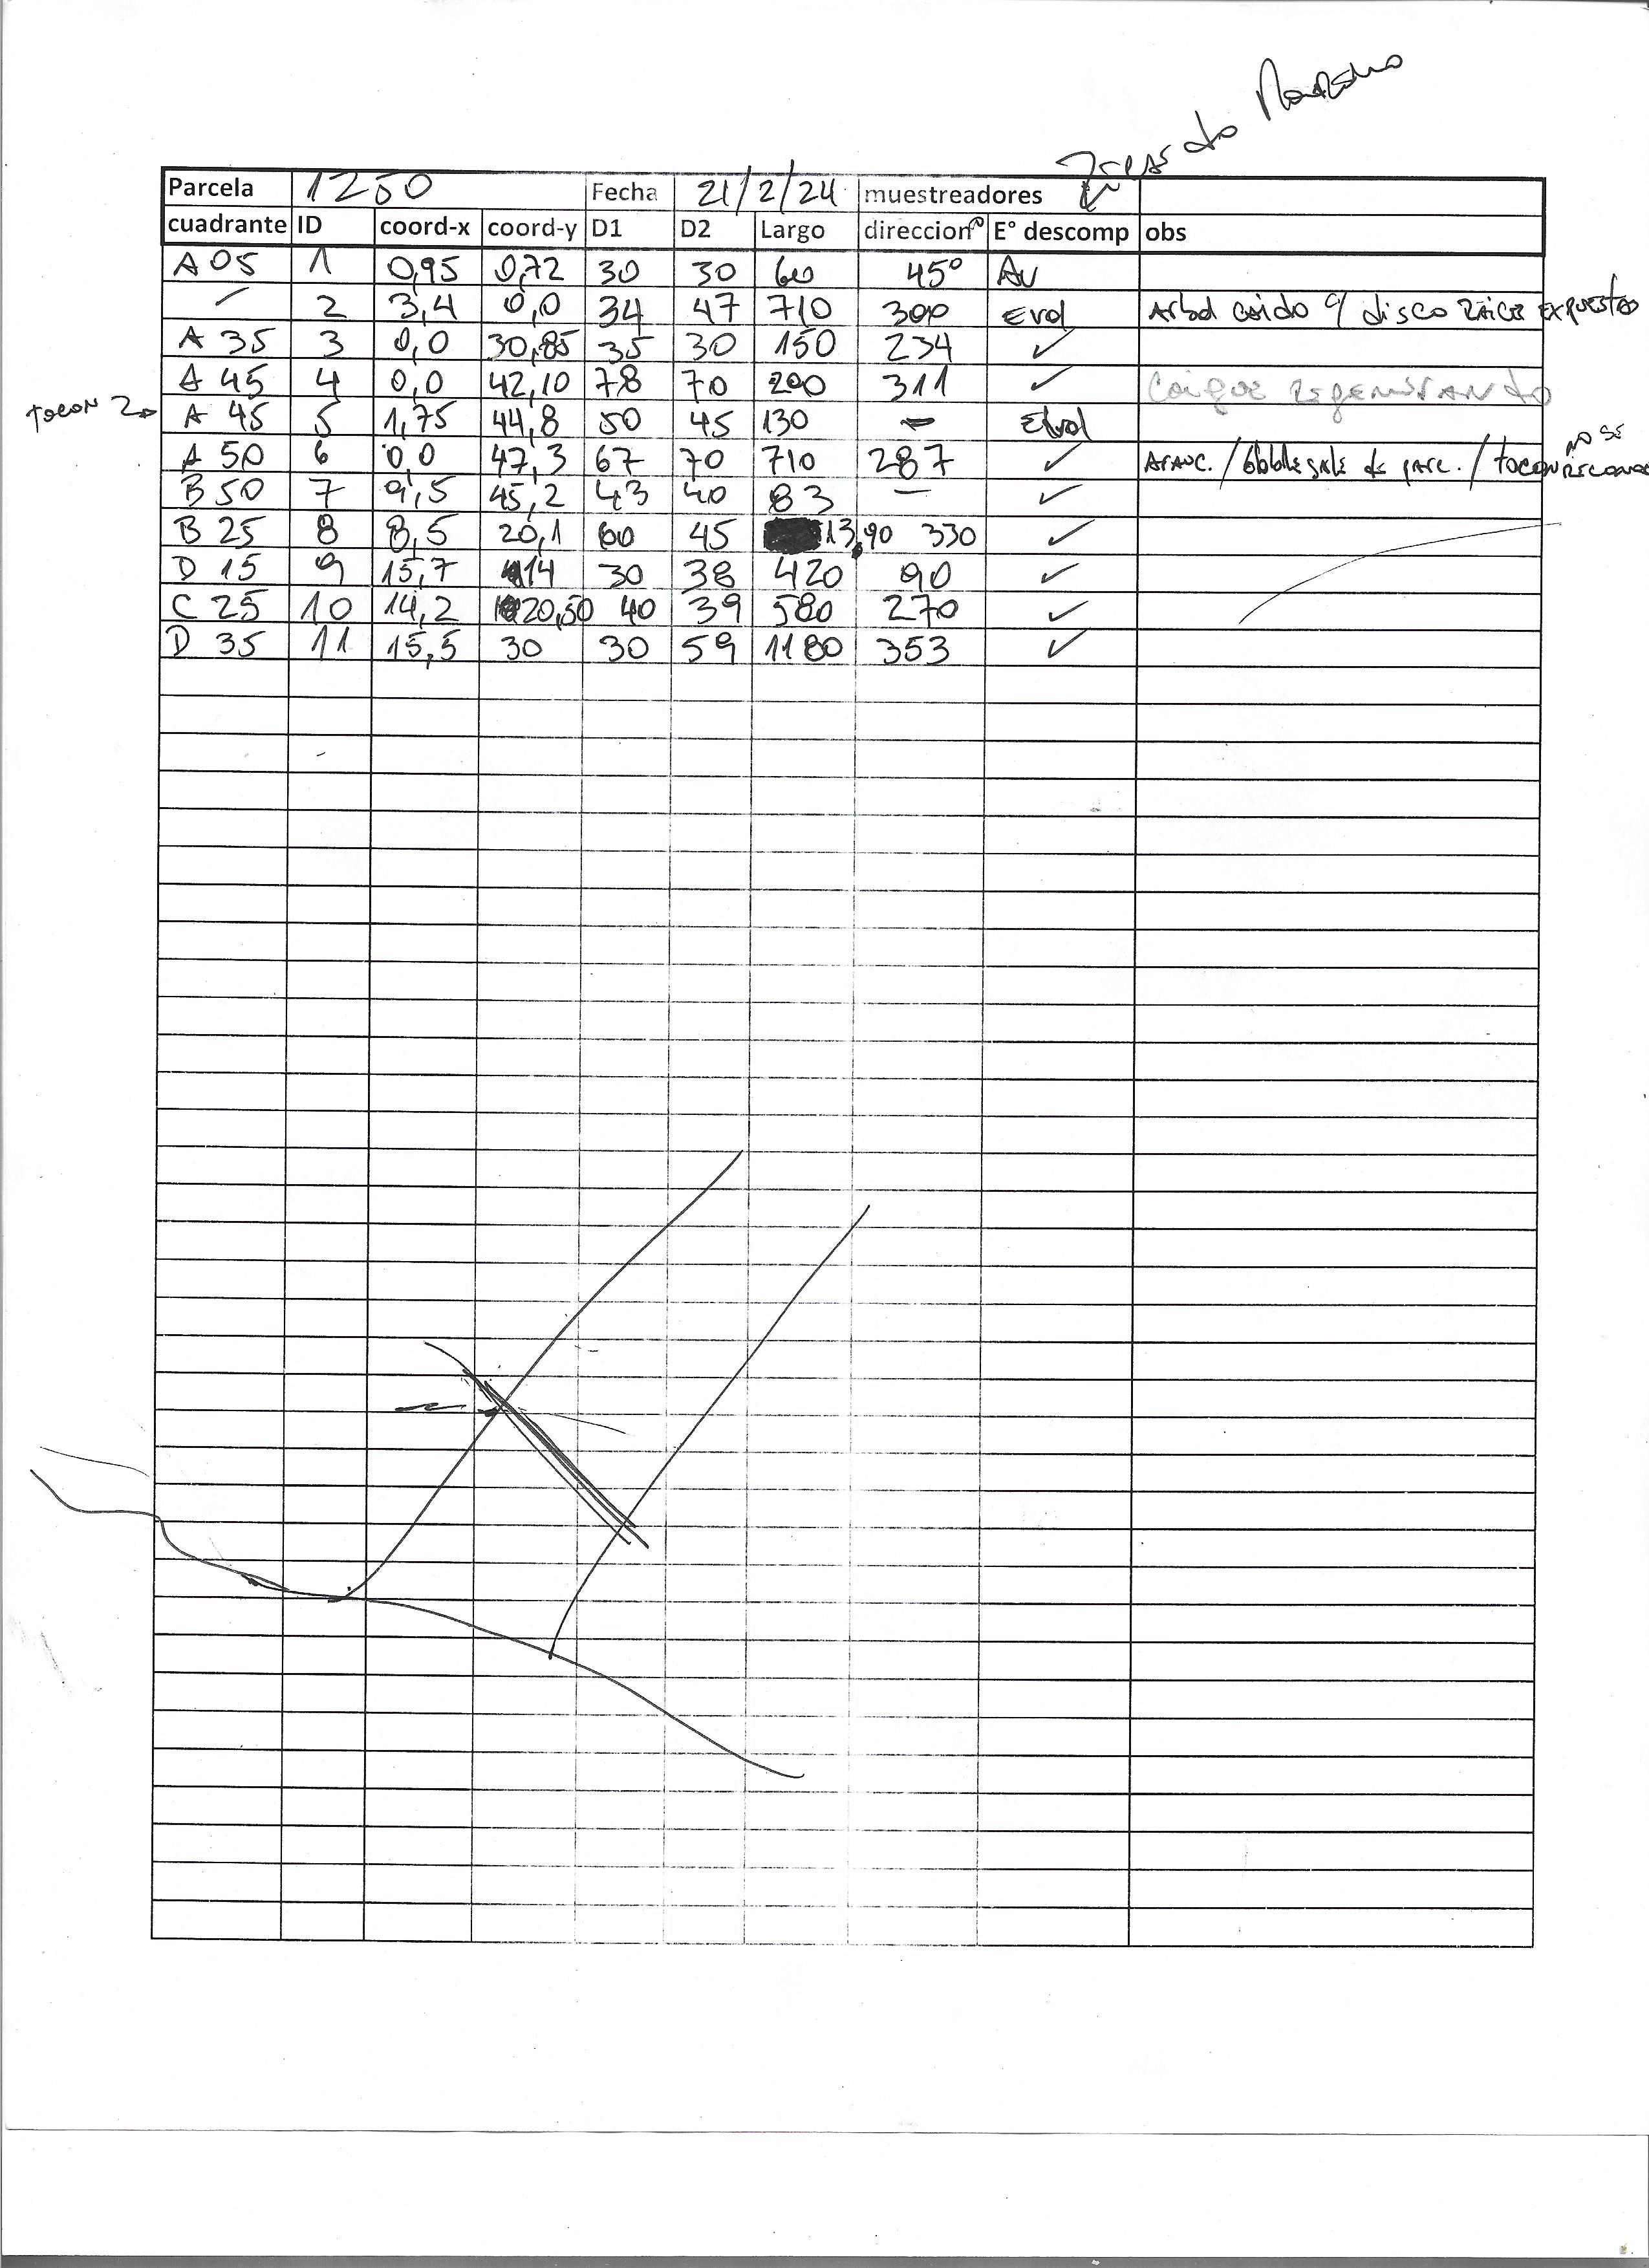 Parcela 1250 Fecha 21/2/24 muestreadores
cuadrante ID coord-x coord-y D1 D2 Largo direccion° E° descomp obs
A 05 1 0,95 0,72 30 30 60 45° Av
2 3,4 0,0 34 47 710 300 Evol Arbol caido c/ disco Raices EXPUESTAS
A 35 3 0,0 30,85 35 30 150 234 ✓
A 45 4 0,0 42,10 78 70 200 311 ✓ Coigue REGENERANDO
TOCON A 45 5 1,75 44,8 50 45 130 - Evol
A 50 6 0,0 47,3 67 70 710 287 ✓ Arauc. / sale de parc. / TOCON NO SE
B 50 7 9,5 45,2 43 40 83 — ✓
B 25 8 8,5 20,1 60 45 13,90 330 ✓
D 15 9 15,7 14 30 38 420 90 ✓
C 25 10 14,2 20,50 40 39 580 270 ✓
D 35 11 15,5 30 30 59 1180 353 ✓